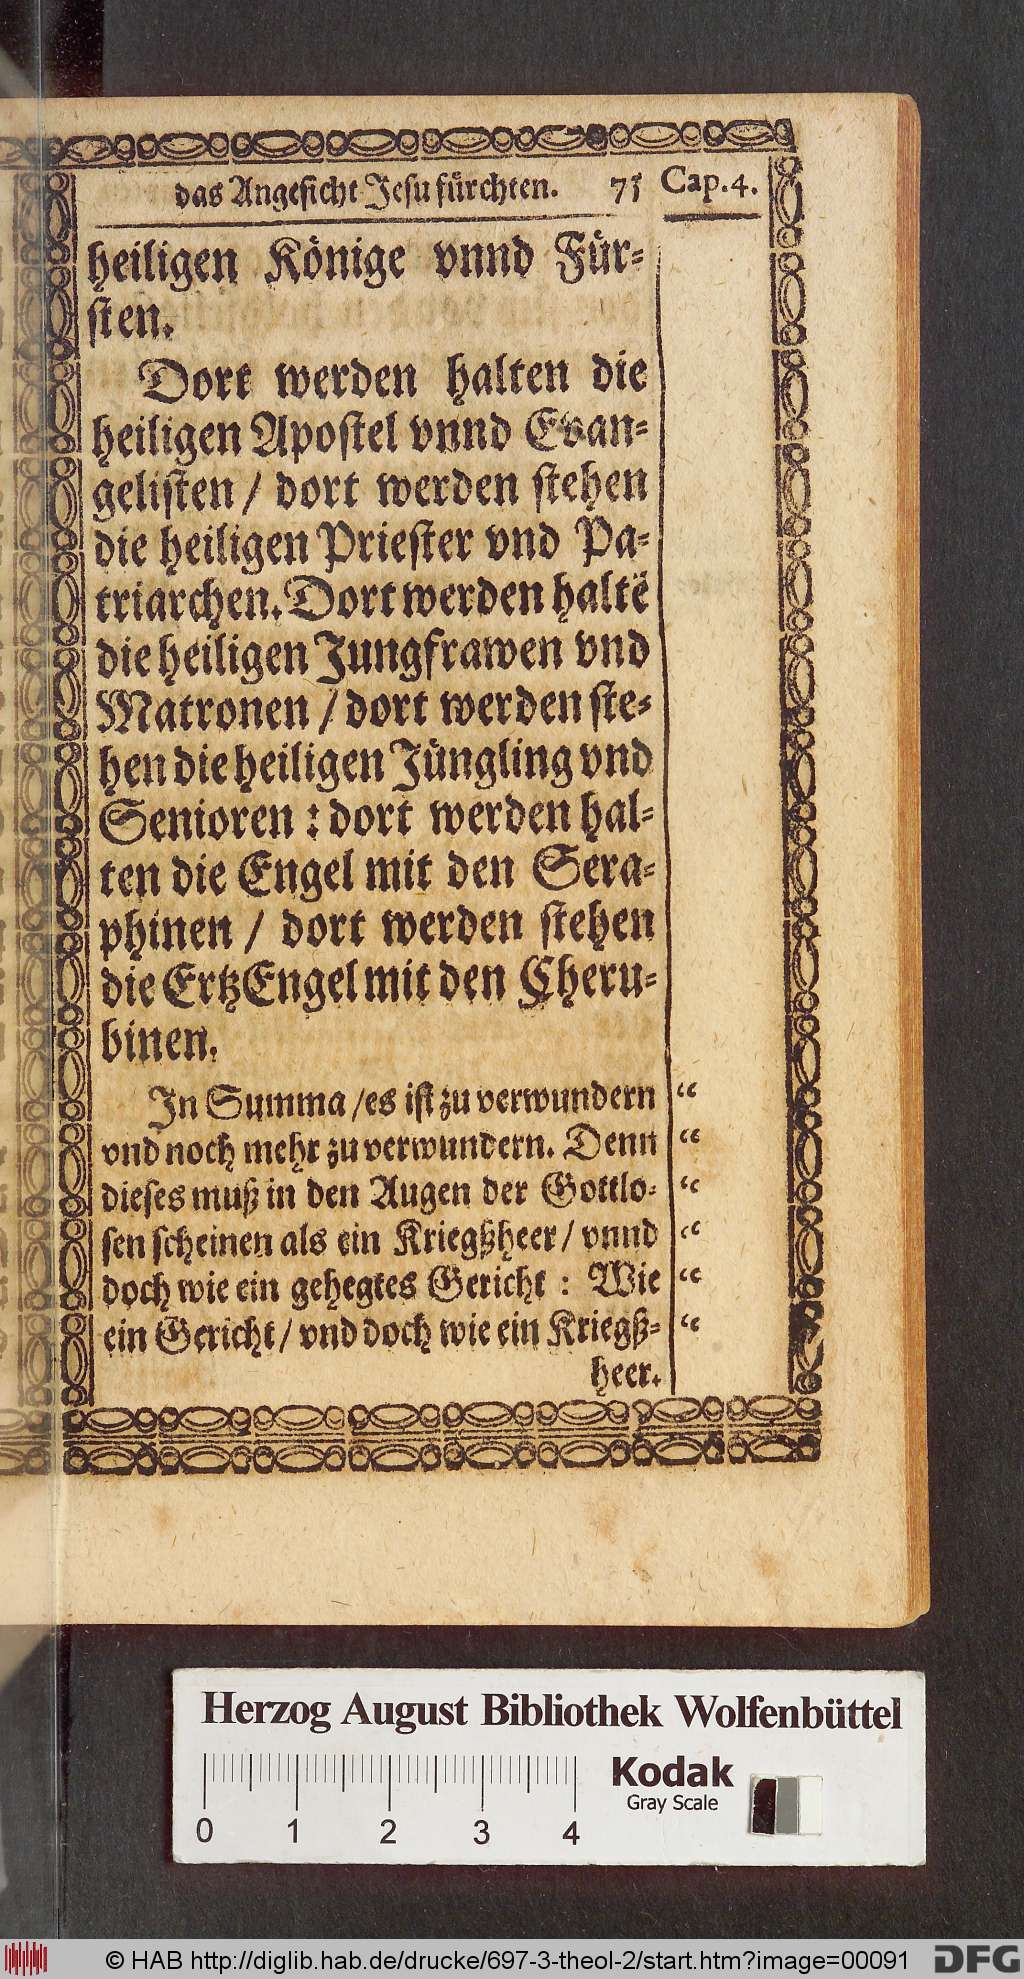 das Angesicht Jesu fürchten. 75 Cap. 4.
heiligen Könige vnnd Für-
sten.
Dort werden halten die
heiligen Apostel vnnd Evan-
gelisten / dort werden stehen
die heiligen Priester vnd Pa-
triarchen. Dort werden haltē
die heiligen Jungfrawen vnd
Matronen / dort werden ste-
hen die heiligen Jüngling vnd
Senioren : dort werden hal-
ten die Engel mit den Sera-
phinen / dort werden stehen
die ErtzEngel mit den Cheru-
binen.
In Summa / es ist zu verwundern “
vnd noch mehr zu verwundern. Denn “
dieses muß in den Augen der Gottlo- “
sen scheinen als ein Kriegßheer / vnnd “
doch wie ein gehegtes Gericht : Wie “
ein Gericht / vnd doch wie ein Kriegß- “
heer.
Herzog August Bibliothek Wolfenbüttel
Kodak
Gray Scale
0 1 2 3 4
© HAB http://diglib.hab.de/drucke/697-3-theol-2/start.htm?image=00091 DFG